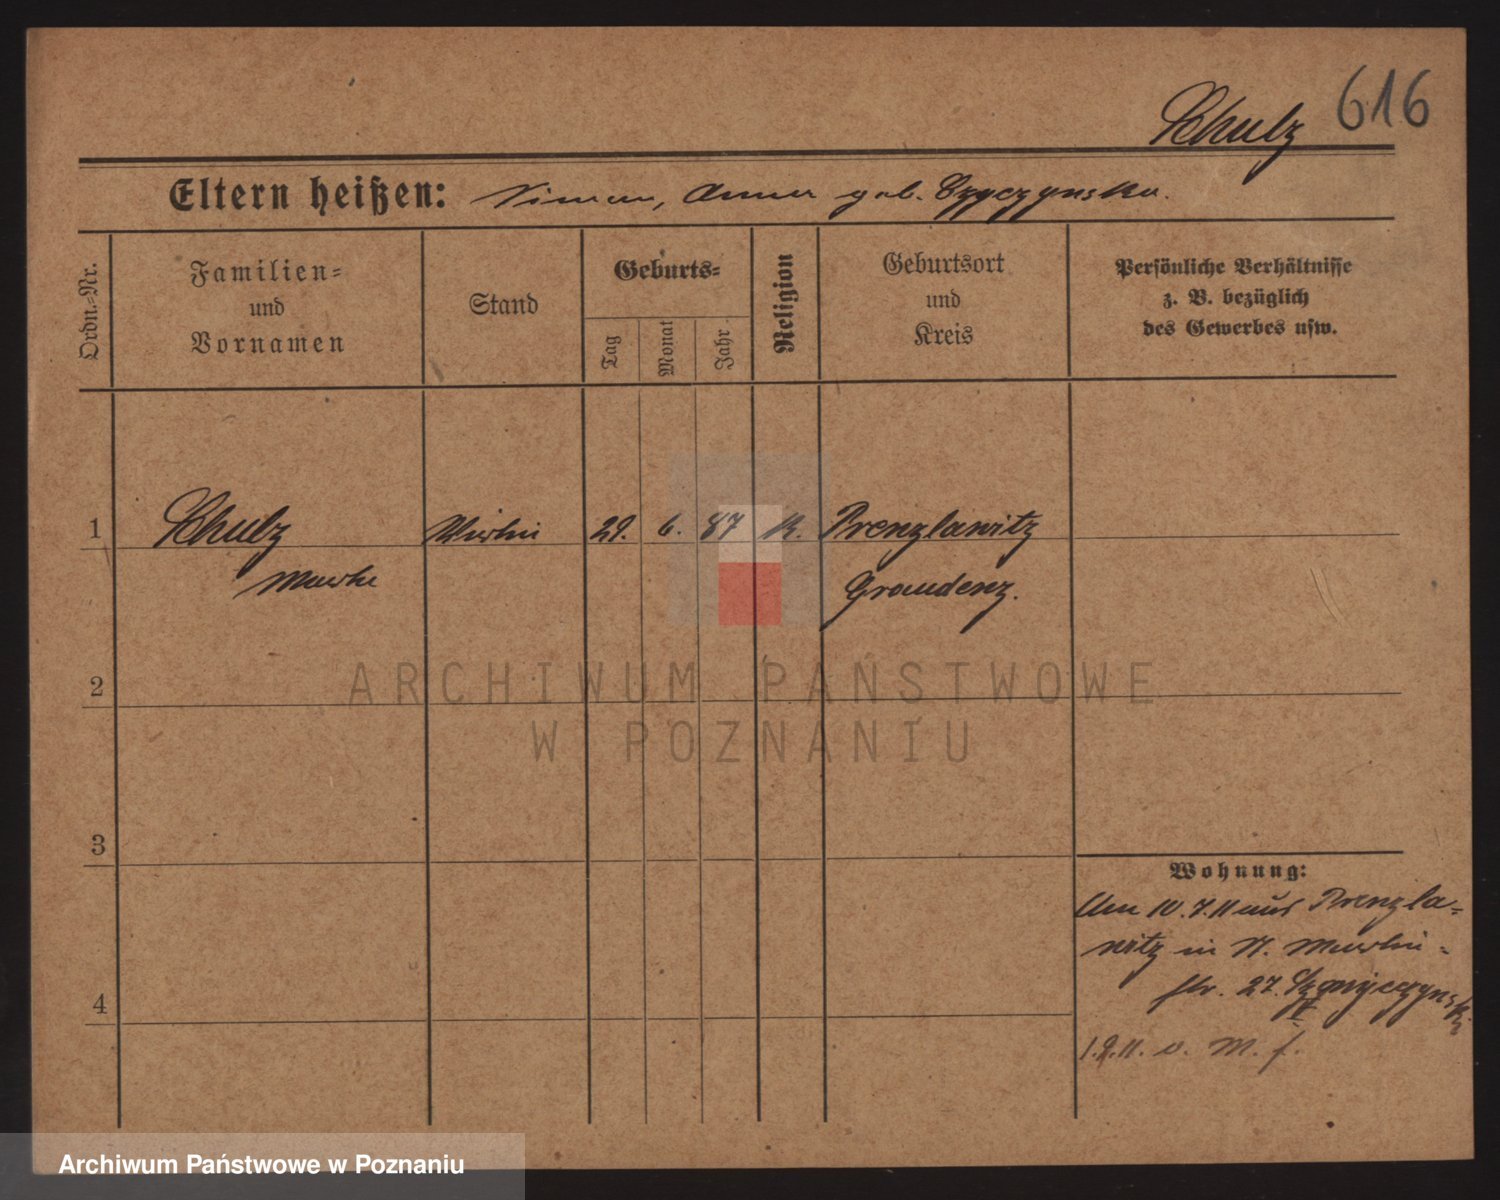 Schulz 616
Eltern heißen: Simon, Anna geb. Czyczynska.
Ordn.-Nr.
Familien-
und
Vornamen
Stand
Geburts-
Tag
Monat
Jahr
Religion
Geburtsort
und
Kreis
Persönliche Verhältnisse
z. B. bezüglich
des Gewerbes usw.
1 Schulz 29. 6. 87 K. Prenzlawitz
Graudenz.
2
ARCHIWUM PAŃSTWOWE
W POZNANIU
3
Wohnung:
Am 10.7.11 aus Prenzla=
witz in
str. 27.
4
1.9.11. v. M. f.
Archiwum Państwowe w Poznaniu